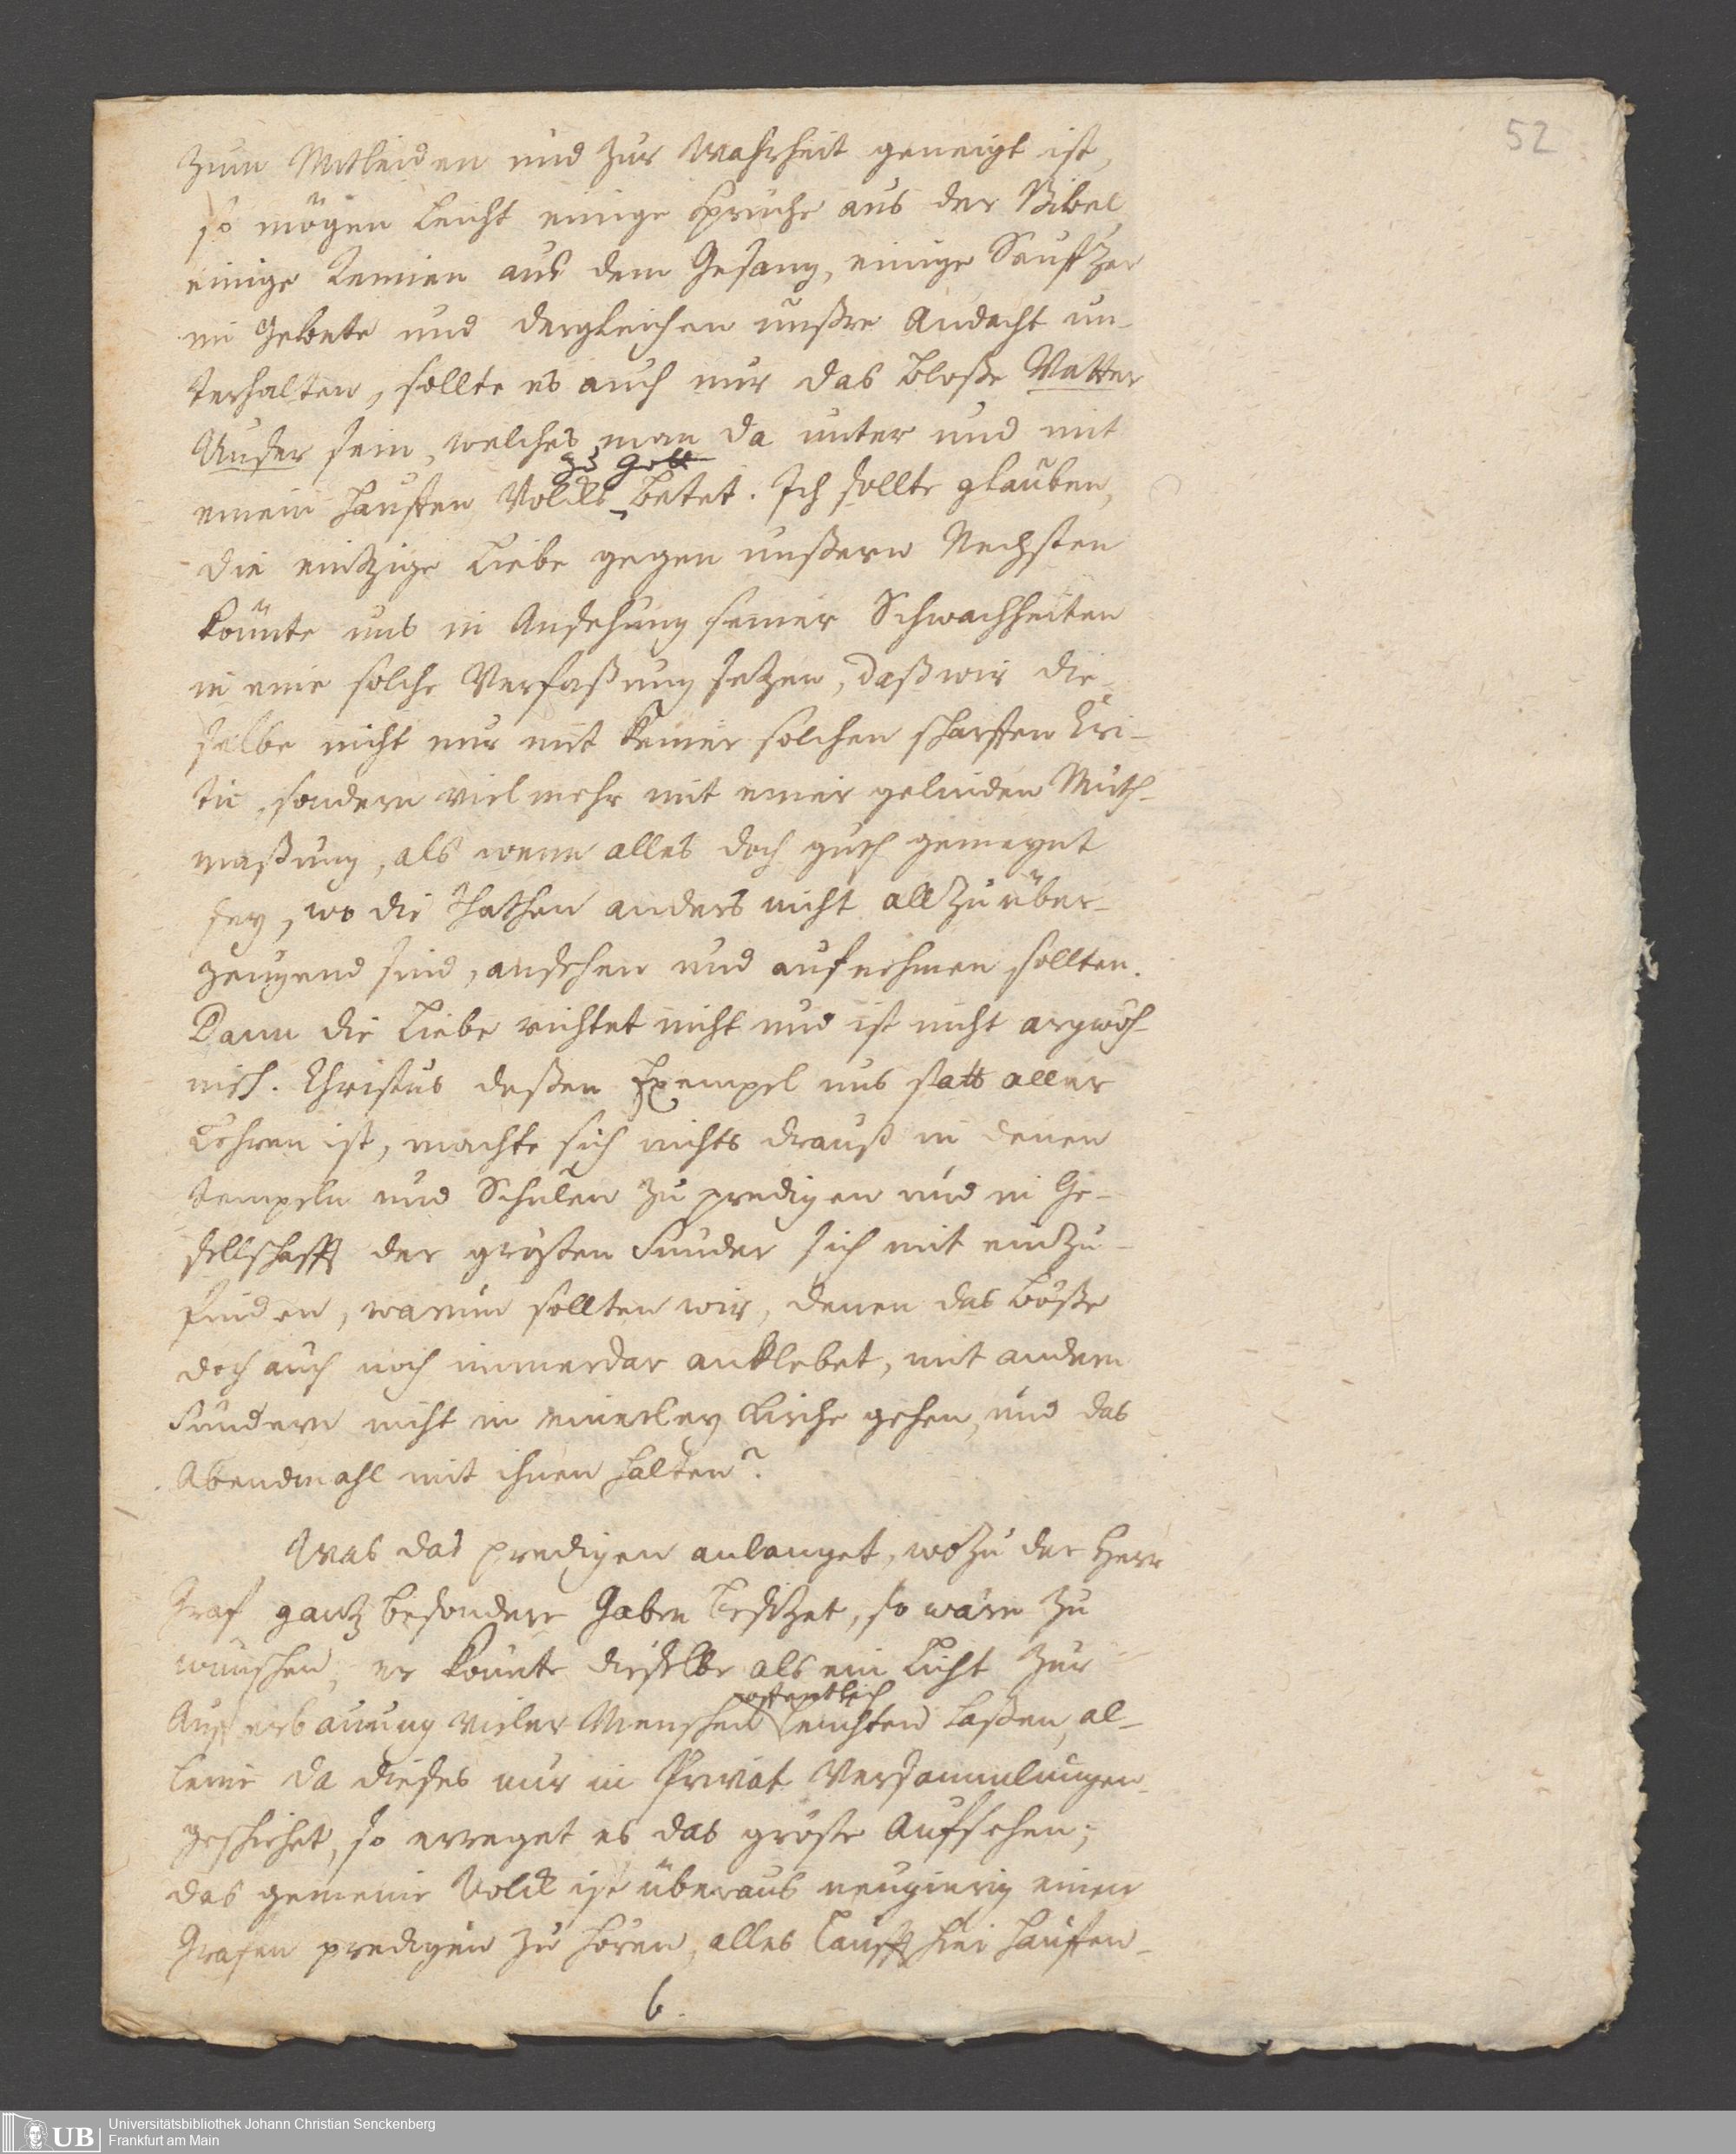 52
zum Mitleiden und zur Wahrheit geneigt ist,
so mögen leicht einige Sprüche aus der Bibel
einige Lemien aus dem Gesang, einige Seufftzer
im Gebete und dergleichen unßre Andacht un-
terhalten, sollte es auch nur das bloße Vatter
Unser sein, welches man da unter und mit
zu Gott
einem hauffen Volcks betet. Ich sollte glauben,
die eintzige Liebe gegen unßern Nechsten
könnte uns in Ansehung seiner Schwachheiten
in eine solche Verfaßung setzen, daß wir die-
selbe nicht nur mit keiner solchen scharffen Cri-
tic, sondern vielmehr mit einer gelinden Muth-
maßung, als wenn alles doch guth gemeynt
sey, wo die Thathen anders nicht allzu über-
zeugend sind, ansehen und aufnehmen sollten.
Dann die Liebe richtet nicht und ist nicht argwöh-
nisch. Christus deßen Exempel uns statt aller
Lehren ist, machte sich nichts drauß in denen
Tempeln und Schulen zu predigen und in Ge-
sellschafft der grösten Sünder sich mit einzu-
finden, warum sollten wir, denen das böße
doch auch noch immerdar anklebet, mit andern
Sündern nicht in einerley Kirche gehen, und das
Abendmahl mit ihnen halten?
Was das predigen anlanget, wozu der Herr
Graf gantz besondere Gaben besitzet, so wäre zu
wünschen, er könnte dieselbe als ein Licht zur
öffentlich
Aufferbauung vieler Menschen leuchten laßen, al-
leine da dieses nur in Privat Versammlungen
geschiehet, so erreget es das gröste Aufsehen;
das gemeine Volck ist überaus neugierig einen
Grafen predigen zu hören, alles laufft hier hauffen-
6.
UB
Universitätsbibliothek Johann Christian Senckenberg
Frankfurt am Main